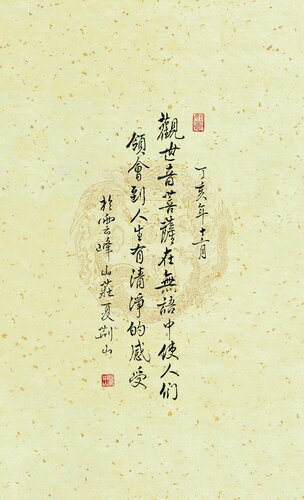 丁亥年十二月
觀世音菩薩在無語中使人們
領會到人生有清淨的感受
於雲峰山莊夏荊山